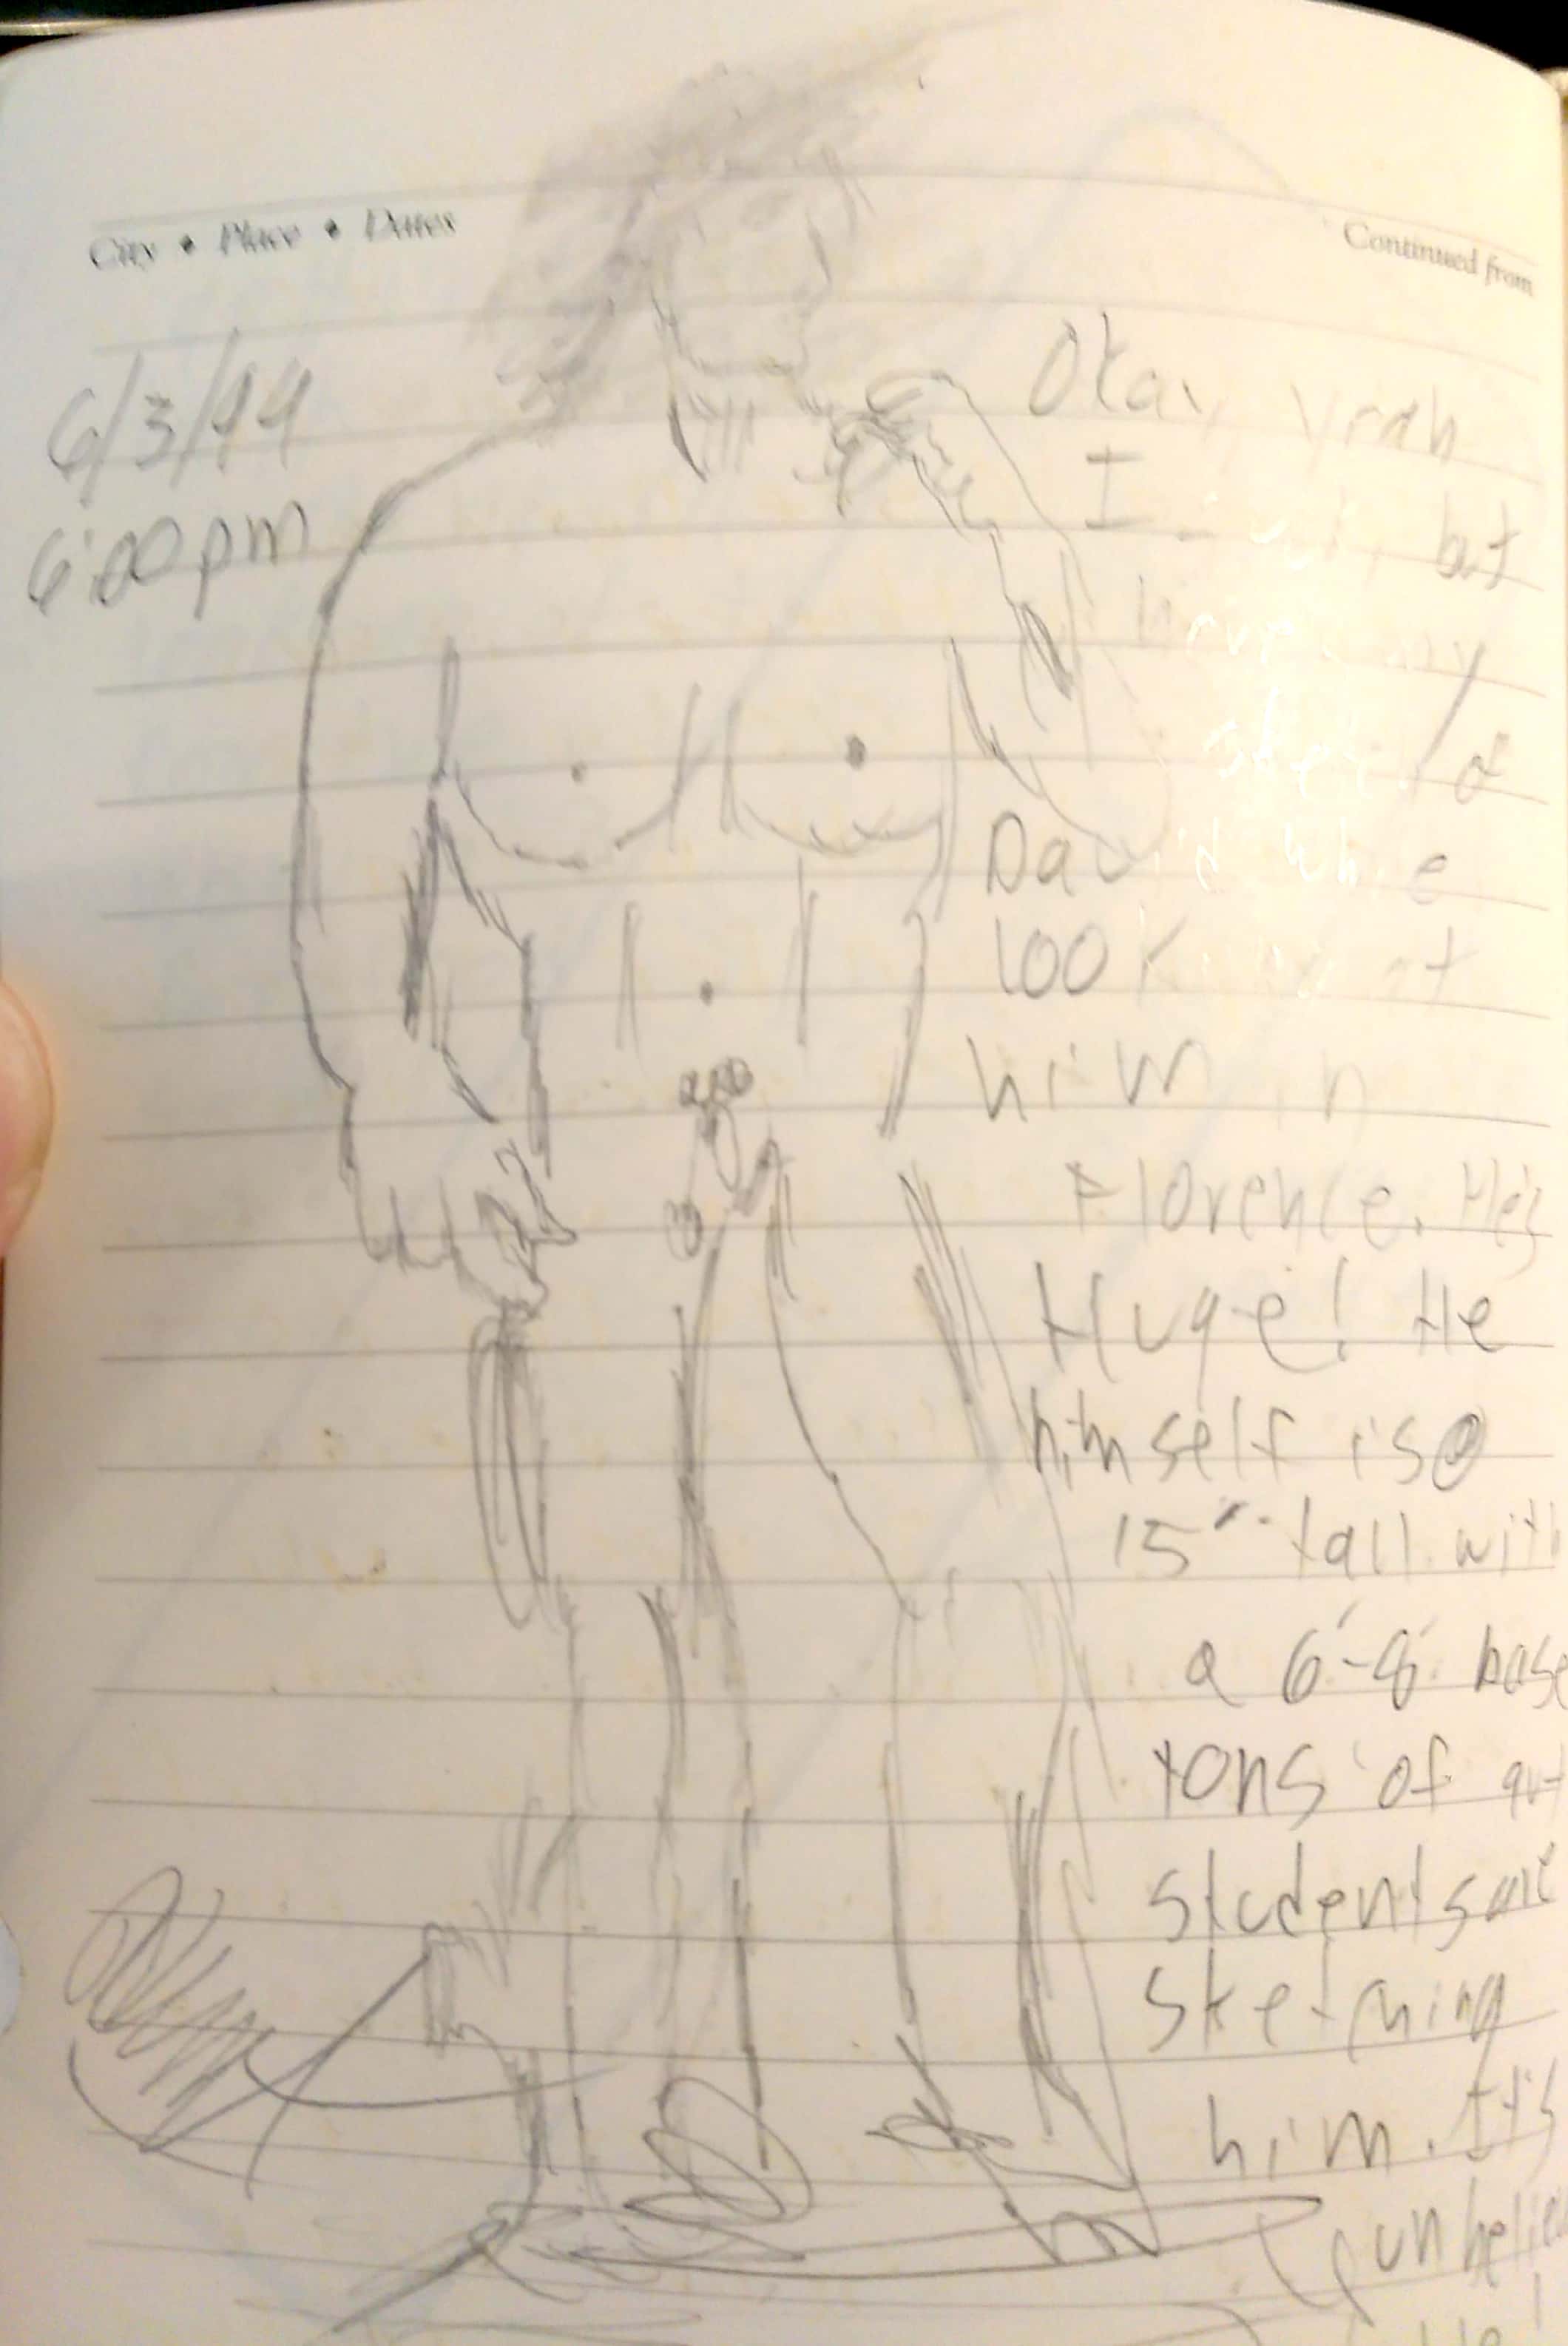 City • Place • Dates
Continued from
6/3/94
6:00pm
Okay, yeah
I but
my
of
David while
looking at
him in
Florence. He's
Huge! He
himself is @
15' tall with
a 6'-8' base
tons of art
students are
sketching
him. It's